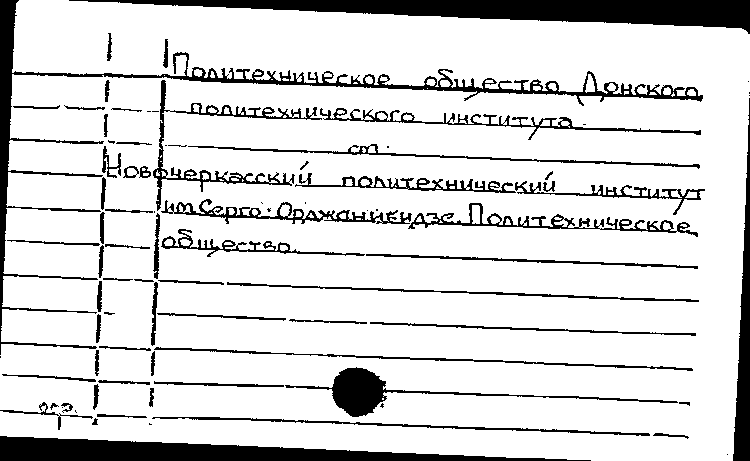 Политехническое общество Донского
политехнического института
ст.
Новочеркасский политехнический институт
им Серго Орджаникидзе. Политехническое
общество.